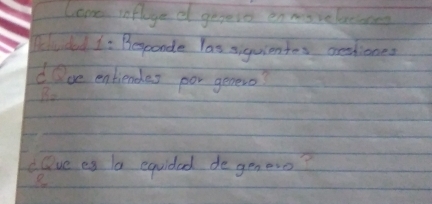 Como influge el genero en mis relaciones
Actividad 1: Responde las siguientes cestiones
¿Que entiendes por genero?
R=
¿Que es la equidad de genero?
R=